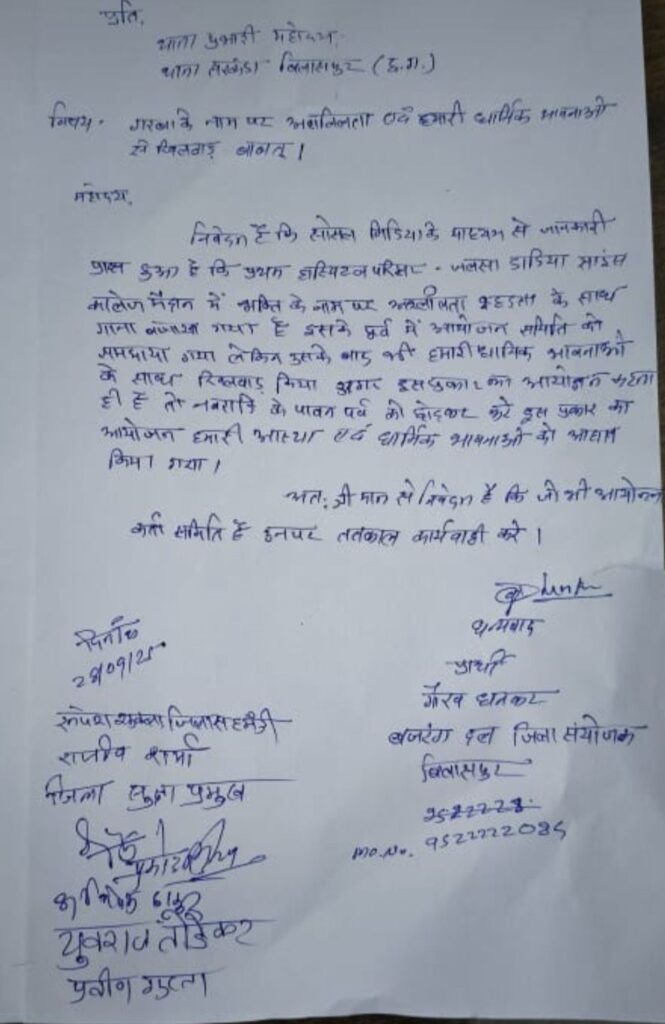 प्रति,
थाना प्रभारी महोदय,
थाना सरकंडा बिलासपुर (छ.ग.)
विषय - गरबा के नाम पर अश्लिलता एवं हमारी धार्मिक भावनाओ
से खिलवाड़ बाबत्।
महोदय,
निवेदन है कि सोसल मिडिया के माध्यम से जानकारी
प्राप्त हुआ है कि प्रथम हास्पिटल परिसर - जलसा डांडिया साइंस
कालेज मैदान में भक्ति के नाम पर अश्लीलता के साथ
गाना बजाया गया है इसके पूर्व में आयोजन समिति को
समझाया गया लेकिन उसके बाद भी हमारी धार्मिक भावनाओ
के साथ खिलवाड़ किया अगर इस प्रकार का आयोजन करना
ही है तो नवरात्रि के पावन पर्व को छोड़कर करे इस प्रकार का
आयोजन हमारी आस्था एवं धार्मिक भावनाओ को आहात
किया गया।
अतः श्रीमान से निवेदन है कि जो भी आयोजन
कर्ता समिति है इनपर तत्काल कार्यवाही करे।
धन्यवाद
दिनाँक
प्रार्थी
गौरव धनकर
बजरंग दल जिला संयोजक
बिलासपुर
राजीव शर्मा
जिला सुरक्षा प्रमुख
mo.No. 9522222085
युवराज तोडेकर
प्रवीण गुप्ता